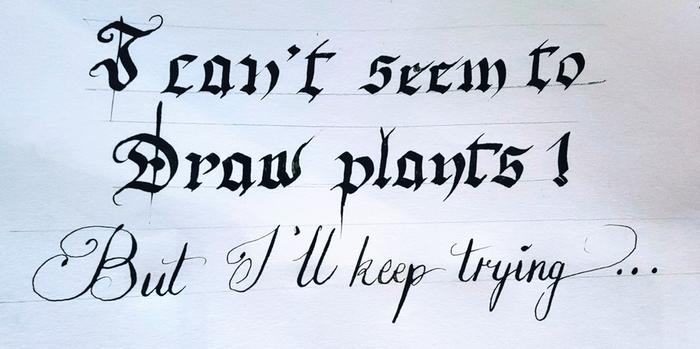 I can't seem to
Draw plants!
But I'll keep trying...